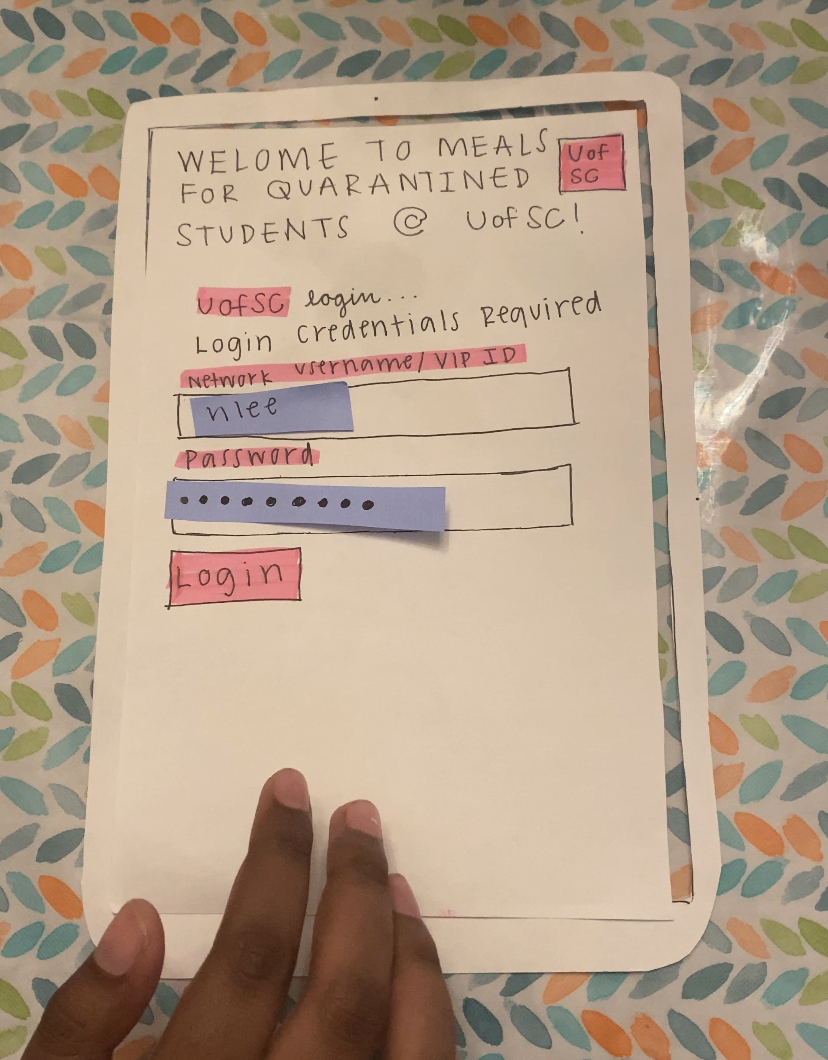 WELOME TO MEALS
FOR QUARANTINED
STUDENTS @ UofSC!
Uof
SC
UofSC login...
Login Credentials Required
Network username/VIP ID
nlee
Password
•••••••••
Login